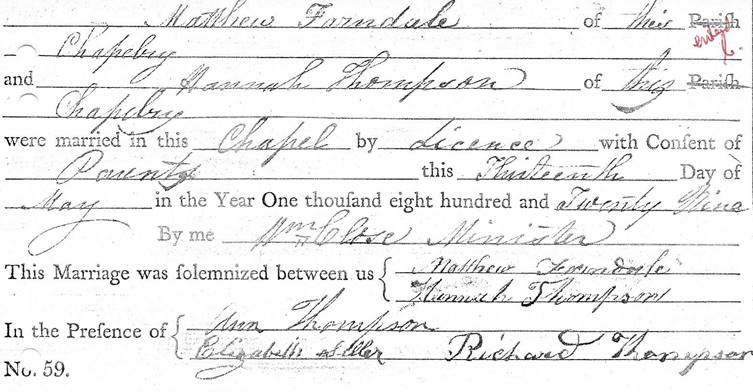 Matthew Farndale of this Parish
Chapelry
and Hannah Thompson of this Parish
Chapelry
were married in this Chapel by Licence with Consent of
Parents this Thirteenth Day of
May in the Year One thouſand eight hundred and Twenty Nine
By me Wm Close Minister
This Marriage was ſolemnized between us { Matthew Farndale
Hannah Thompson
In the Preſence of { Ann Thompson
Elizabeth Richard Thompson
No. 59.